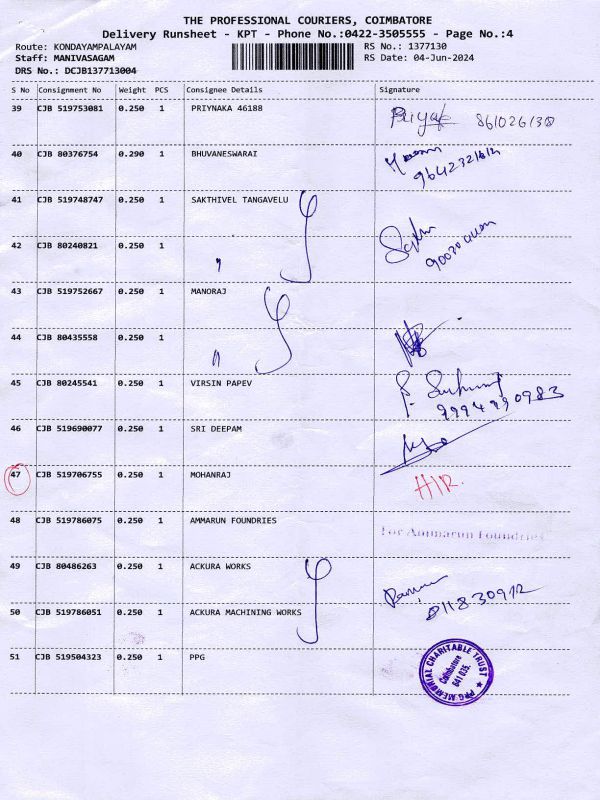 THE PROFESSIONAL COURIERS, COIMBATORE
Delivery Runsheet - KPT - Phone No.:0422-3505555 - Page No.:4
Route: KONDAYAMPALAYAM RS No.: 1377130
Staff: MANIVASAGAM RS Date: 04-Jun-2024
DRS No.: DCJB137713004
S No Consignment No Weight PCS Consignee Details Signature
39 CJB 519753081 0.250 1 PRIYNAKA 46188
40 CJB 80376754 0.290 1 BHUVANESWARAI
41 CJB 519748747 0.250 1 SAKTHIVEL TANGAVELU
42 CJB 80240821 0.250 1 "
43 CJB 519752667 0.250 1 MANORAJ
44 CJB 80435558 0.250 1 "
45 CJB 80245541 0.250 1 VIRSIN PAPEV 9994990983
46 CJB 519690077 0.250 1 SRI DEEPAM
47 CJB 519706755 0.250 1 MOHANRAJ
48 CJB 519786075 0.250 1 AMMARUN FOUNDRIES For Ammarun Foundries
49 CJB 80486263 0.250 1 ACKURA WORKS
50 CJB 519786051 0.250 1 ACKURA MACHINING WORKS
51 CJB 519504323 0.250 1 PPG
PPG MEMORIAL CHARITABLE TRUST
Coimbatore
641 035.